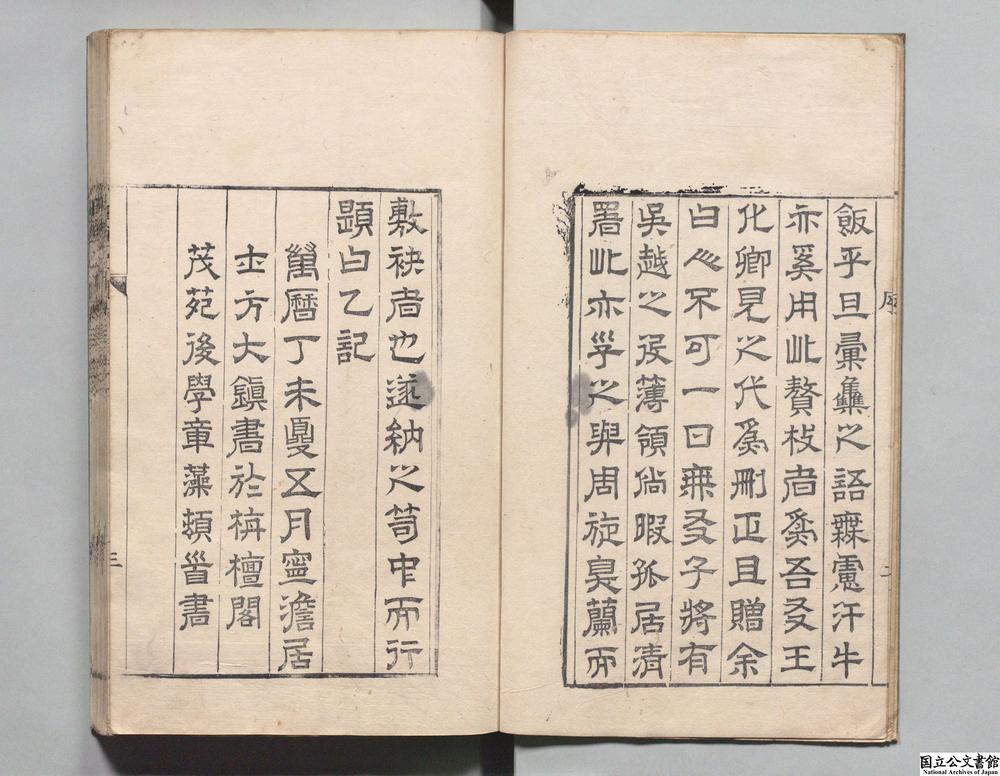 序
二
飯乎且彙集之語無慮汗牛
亦奚用此贅枝者為吾友王
化卿見之代為刪正且贈余
曰此不可一日無友子將有
吳越之役簿領倘暇孤居清
署此亦孚之與周旋臭蘭而
敷袂者也遂納之笥中而行
題曰乙記
萬曆丁未夏五月寧澹居
士方大鎮書於栴檀閣
茂苑後學章藻頓首書
三
国立公文書館
National Archives of Japan